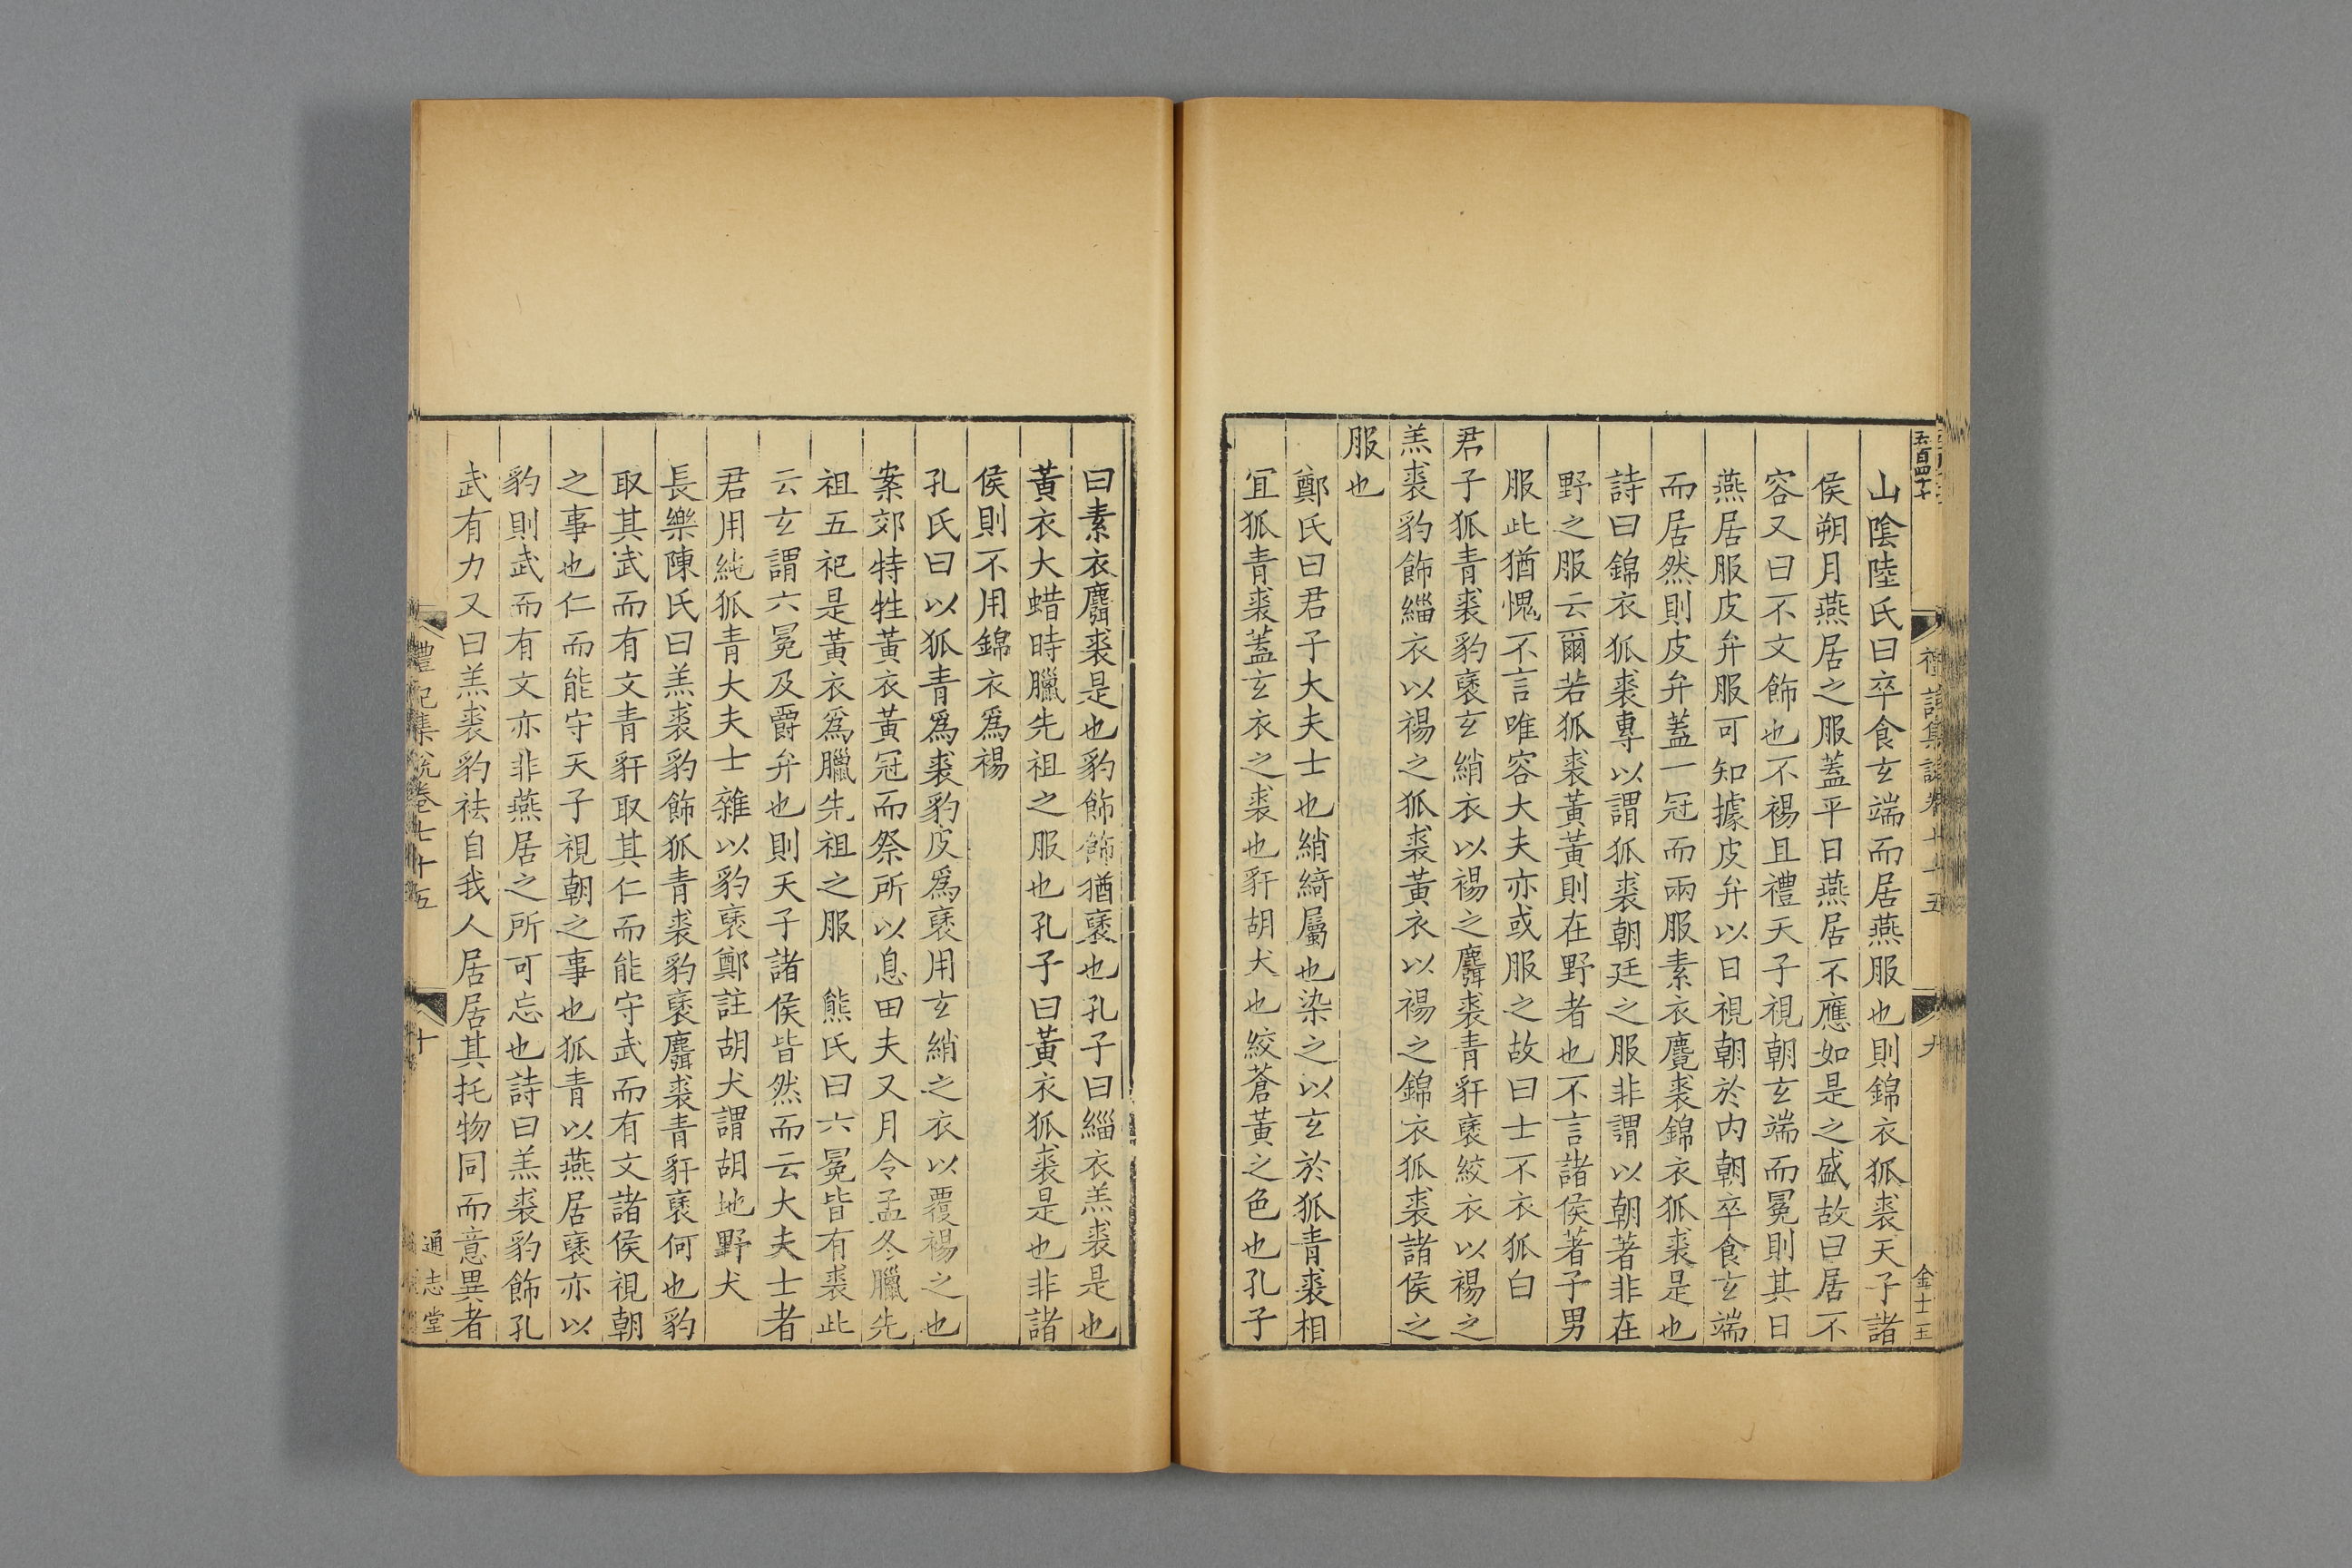 五百四十七
禮記集說卷七十五
九
金士玉
山陰陸氏曰卒食玄端而居燕服也則錦衣狐裘天子諸
侯朔月燕居之服蓋平日燕居不應如是之盛故曰居不
容又曰不文飾也不裼且禮天子視朝玄端而冕則其日
燕居服皮弁服可知據皮弁以日視朝於内朝卒食玄端
而居然則皮弁蓋一冠而兩服素衣麑裘錦衣狐裘是也
詩曰錦衣狐裘專以謂狐裘朝廷之服非謂以朝著非在
野之服云爾若狐裘黃黃則在野者也不言諸侯著子男
服此猶愧不言唯容大夫亦或服之故曰士不衣狐白
君子狐青裘豹褎玄綃衣以裼之麛裘青豻褎絞衣以裼之
羔裘豹飾緇衣以裼之狐裘黃衣以裼之錦衣狐裘諸侯之
服也
鄭氏曰君子大夫士也綃綺屬也染之以玄於狐青裘相
宜狐青裘蓋玄衣之裘也豻胡犬也絞蒼黃之色也孔子
曰素衣麛裘是也豹飾飾猶褎也孔子曰緇衣羔裘是也
黃衣大蜡時臘先祖之服也孔子曰黃衣狐裘是也非諸
侯則不用錦衣爲裼
孔氏曰以狐青爲裘豹皮爲褎用玄綃之衣以覆裼之也
案郊特牲黃衣黃冠而祭所以息田夫又月令孟冬臘先
祖五祀是黃衣爲臘先祖之服 熊氏曰六冕皆有裘此
云玄謂六冕及爵弁也則天子諸侯皆然而云大夫士者
君用純狐青大夫士雜以豹褎鄭註胡犬謂胡地野犬
長樂陳氏曰羔裘豹飾狐青裘豹褎麛裘青豻褎何也豹
取其武而有文青豻取其仁而能守武而有文諸侯視朝
之事也仁而能守天子視朝之事也狐青以燕居褎亦以
豹則武而有文亦非燕居之所可忘也詩曰羔裘豹飾孔
武有力又曰羔裘豹袪自我人居居其托物同而意異者
禮記集說卷七十五
十
通志堂